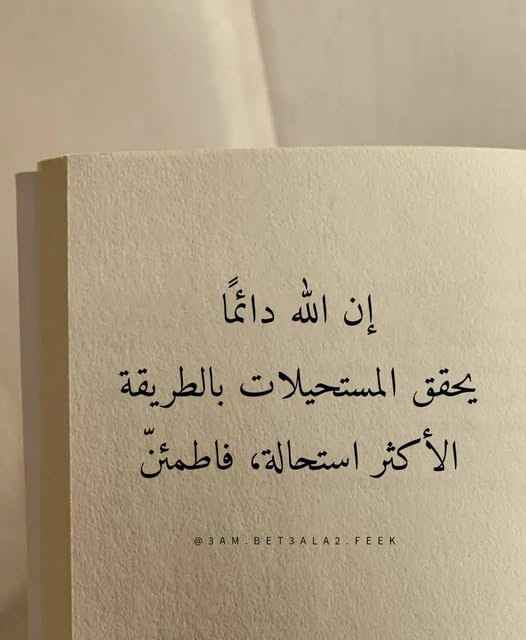 إن الله دائمًا
يحقق المستحيلات بالطريقة
الأكثر استحالة، فاطمئنّ
@3AM.BET3ALA2.FEEK